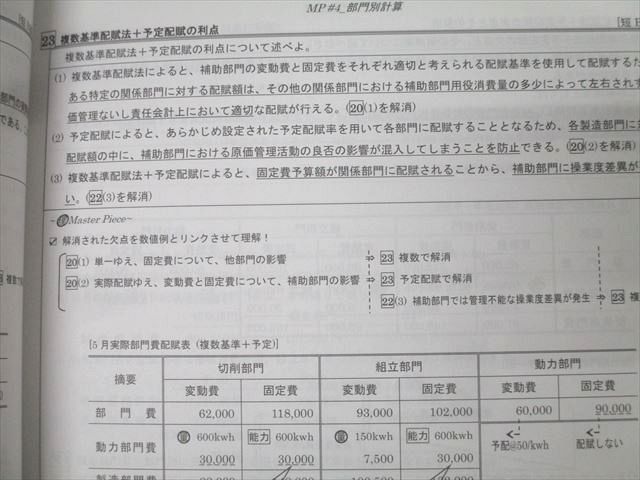 MP #4_部門別計算
[短
23 複数基準配賦法＋予定配賦の利点
複数基準配賦法＋予定配賦の利点について述べよ。
(1) 複数基準配賦法によると、補助部門の変動費と固定費をそれぞれ適切と考えられる配賦基準を使用して配賦するた
ある特定の関係部門に対する配賦額は、その他の関係部門における補助部門用役消費量の多少によって左右されず
価管理ないし責任会計上において適切な配賦が行える。(20(1)を解消)
(2) 予定配賦によると、あらかじめ設定された予定配賦率を用いて各部門に配賦することとなるため、各製造部門に対
配賦額の中に、補助部門における原価管理活動の良否の影響が混入してしまうことを防止できる。(20(2)を解消)
(3) 複数基準配賦法＋予定配賦によると、固定費予算額が関係部門に配賦されることから、補助部門に操業度差異が
い。(22(3)を解消)
~Master Piece~
☑ 解消された欠点を数値例とリンクさせて理解！
20(1) 単一ゆえ、固定費について、他部門の影響 ⇒ 23 複数で解消
20(2) 実際配賦ゆえ、変動費と固定費について、補助部門の影響 ⇒ 23 予定配賦で解消
22(3) 補助部門では管理不能な操業度差異が発生 ⇒ 23 複
[5月実際部門費配賦表（複数基準＋予定)]
摘要 切削部門 組立部門 動力部門
変動費 固定費 変動費 固定費 変動費 固定費
部門費 62,000 118,000 93,000 102,000 60,000 90,000
動力部門費 量 600kwh 能力 600kwh 量 150kwh 能力 600kwh 予配@50/kwh 配賦しない
30,000 30,000 7,500 30,000